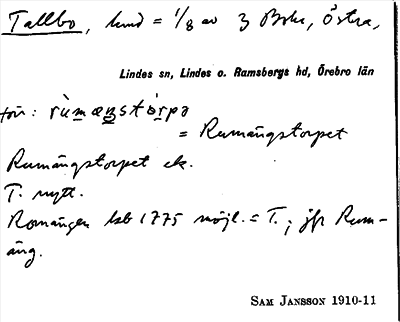 Tallbo, hmd = 1/8 av 3 Bohr, Östra,
Lindes sn, Lindes o. Ramsbergs hd, Örebro län
= Rumängstorpet
Rumängstorpet ek.
T. nytt.
Romängen hsb 1775 möjl. = T.; jfr Rum-
äng.
SAM JANSSON 1910-11